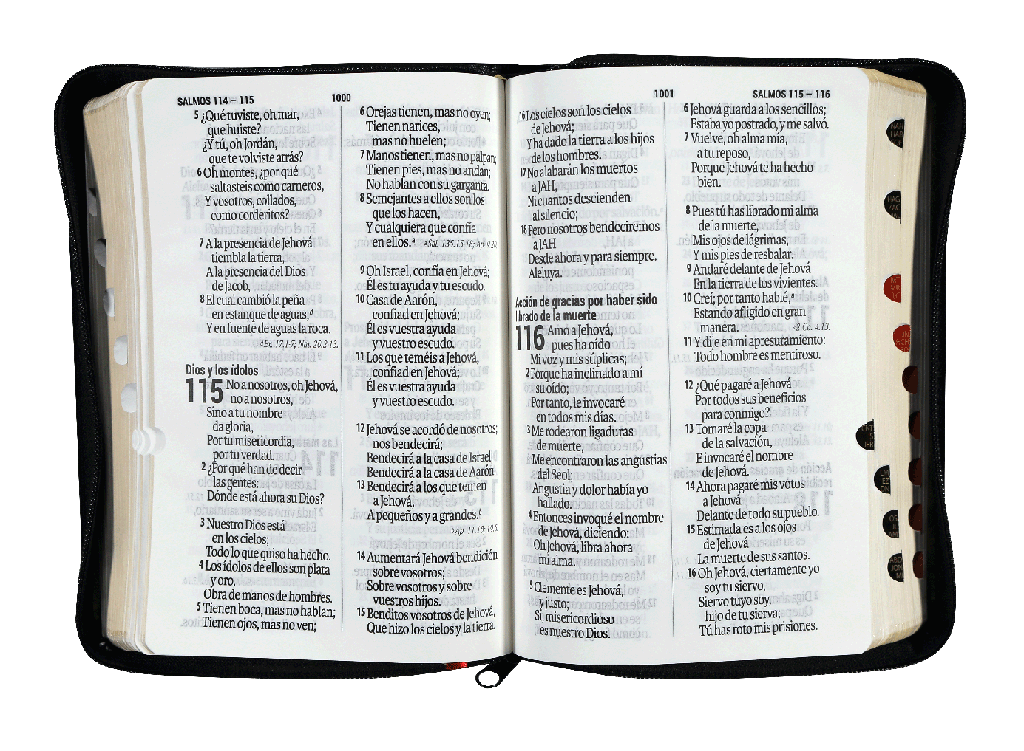 SALMOS 114 – 115
1000
5 ¿Qué tuviste, oh mar,
que huiste?
¿Y tú, oh Jordán,
que te volviste atrás?
6 Oh montes, ¿por qué
saltasteis como carneros,
Y vosotros, collados,
como corderitos?
7 A la presencia de Jehová
tiembla la tierra,
A la presencia del Dios
de Jacob,
8 El cual cambió la peña
en estanque de aguas,
Y en fuente de aguas la roca.
Dios y los ídolos
115 No a nosotros, oh Jehová,
no a nosotros,
Sino a tu nombre
da gloria,
Por tu misericordia,
por tu verdad.
2 ¿Por qué han de decir
las gentes:
Dónde está ahora su Dios?
3 Nuestro Dios está
en los cielos;
Todo lo que quiso ha hecho.
4 Los ídolos de ellos son plata
y oro,
Obra de manos de hombres.
5 Tienen boca, mas no hablan;
Tienen ojos, mas no ven;
6 Orejas tienen, mas no oyen;
Tienen narices,
mas no huelen;
7 Manos tienen, mas no palpan;
Tienen pies, mas no andan;
No hablan con su garganta.
8 Semejantes a ellos son los
que los hacen,
Y cualquiera que confía
en ellos.
9 Oh Israel, confía en Jehová;
Él es tu ayuda y tu escudo.
10 Casa de Aarón,
confiad en Jehová;
Él es vuestra ayuda
y vuestro escudo.
11 Los que teméis a Jehová,
confiad en Jehová;
Él es vuestra ayuda
y vuestro escudo.
12 Jehová se acordó de nosotros;
nos bendecirá;
Bendecirá a la casa de Israel
Bendecirá a la casa de Aarón
13 Bendecirá a los que temen
a Jehová,
A pequeños y a grandes.
14 Aumentará Jehová bendición
sobre vosotros;
Sobre vosotros y sobre
vuestros hijos.
15 Benditos vosotros de Jehová,
Que hizo los cielos y la tierra.
1001
SALMOS 115 – 116
16 Los cielos son los cielos
de Jehová;
Y ha dado la tierra a los hijos
de los hombres.
17 No alabarán los muertos
a JAH,
Ni cuantos descienden
al silencio;
18 Pero nosotros bendeciremos
a JAH
Desde ahora y para siempre.
Aleluya.
Acción de gracias por haber sido
librado de la muerte
116 Amo a Jehová,
pues ha oído
Mi voz y mis súplicas;
2 Porque ha inclinado a mí
su oído;
Por tanto, le invocaré
en todos mis días.
3 Me rodearon ligaduras
de muerte,
Me encontraron las angustias
del Seol;
Angustia y dolor había yo
hallado.
4 Entonces invoqué el nombre
de Jehová, diciendo:
Oh Jehová, libra ahora
mi alma.
5 Clemente es Jehová,
y justo;
Sí, misericordioso
es nuestro Dios.
6 Jehová guarda a los sencillos;
Estaba yo postrado, y me salvó.
7 Vuelve, oh alma mía,
a tu reposo,
Porque Jehová te ha hecho
bien.
8 Pues tú has librado mi alma
de la muerte,
Mis ojos de lágrimas,
Y mis pies de resbalar.
9 Andaré delante de Jehová
En la tierra de los vivientes.
10 Creí; por tanto hablé,
Estando afligido en gran
manera.
11 Y dije en mi apresuramiento:
Todo hombre es mentiroso.
12 ¿Qué pagaré a Jehová
Por todos sus beneficios
para conmigo?
13 Tomaré la copa
de la salvación,
E invocaré el nombre
de Jehová.
14 Ahora pagaré mis votos
a Jehová
Delante de todo su pueblo.
15 Estimada es a los ojos
de Jehová
La muerte de sus santos.
16 Oh Jehová, ciertamente yo
soy tu siervo,
Siervo tuyo soy,
hijo de tu sierva;
Tú has roto mis prisiones.